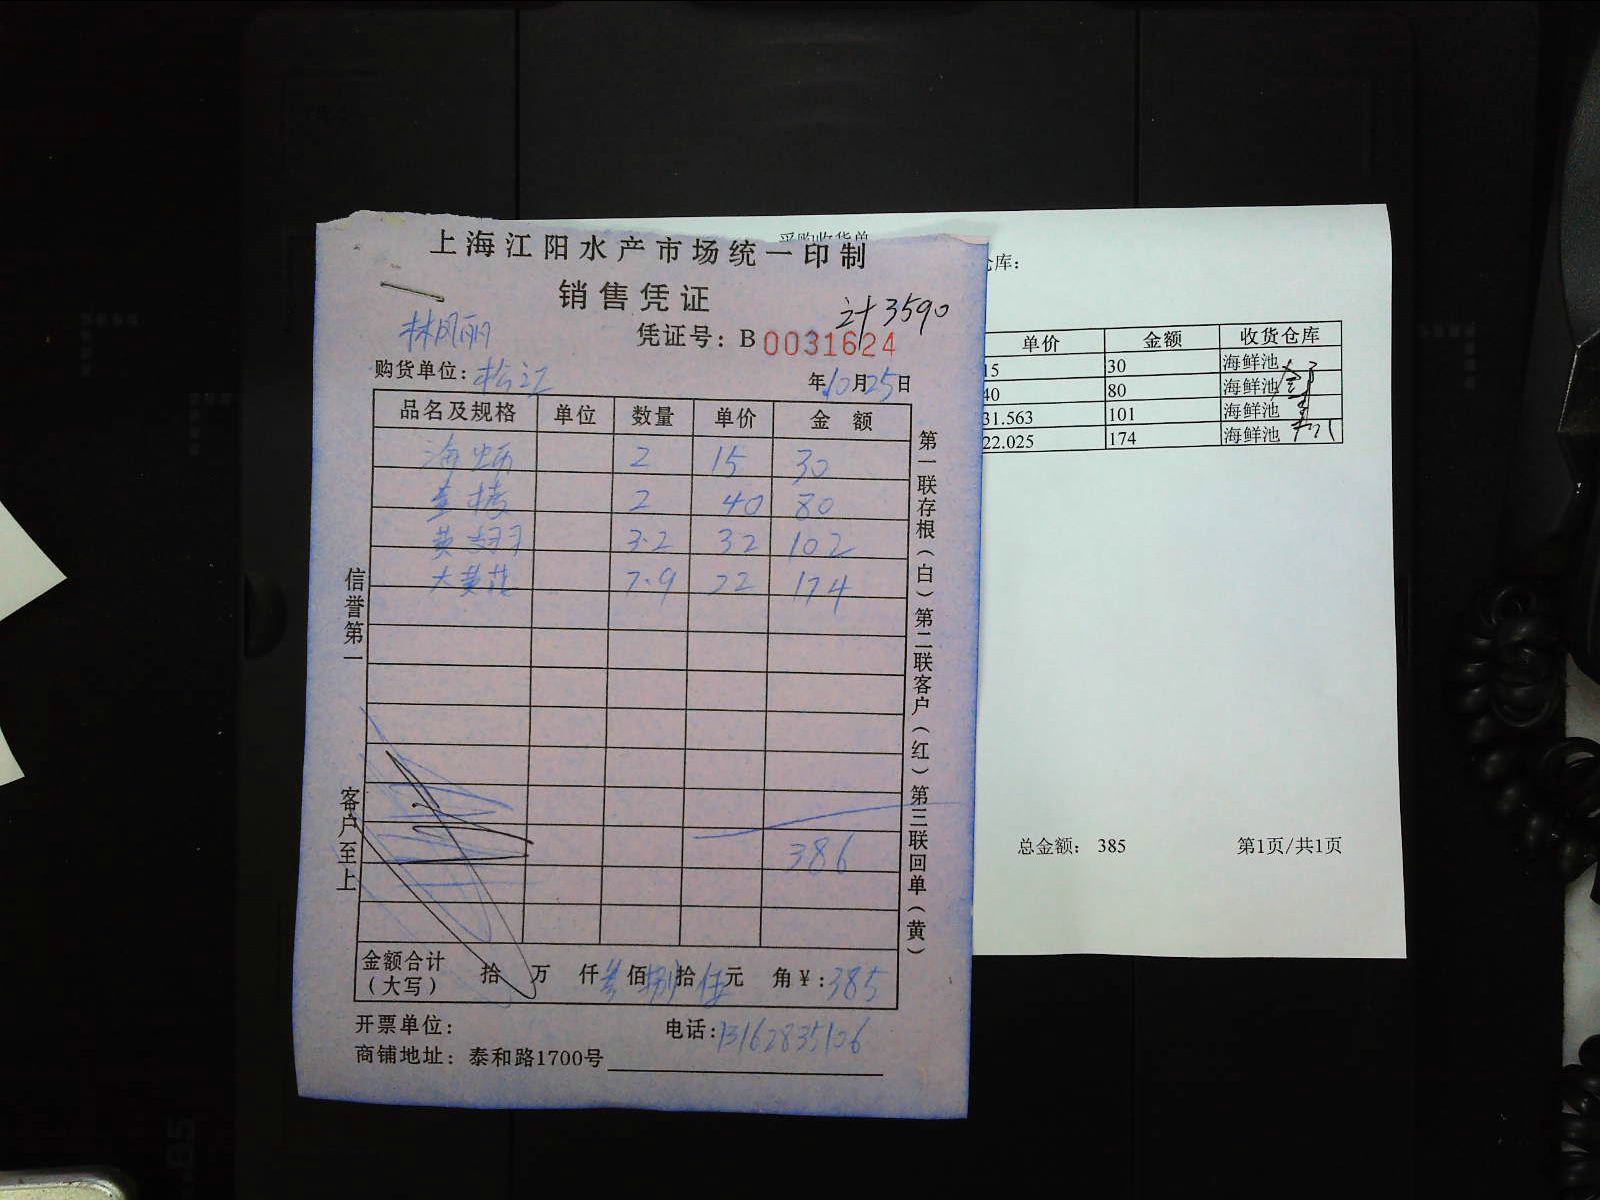 上海江阳水产市场统一印制
销售凭证
计3590
林凤丽
凭证号：B 0031624
购货单位：松江
年10月25日
品名及规格 单位 数量 单价 金额
2 15 30
2 40 80
3.2 32 102
大黄花 7.9 22 174
386
金额合计（大写） 拾 万 仟叁佰捌拾伍元 角￥：385
开票单位：
电话：13162835106
商铺地址：泰和路1700号
信誉第一
客户至上
第一联存根（白）第二联客户（红）第三联回单（黄）
采购收货单
仓库：
单价 金额 收货仓库
15 30 海鲜池
40 80 海鲜池
31.563 101 海鲜池
22.025 174 海鲜池
总金额： 385
第1页/共1页